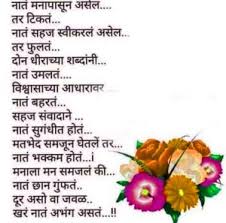 नातं मनापासून असेल....
तर टिकतं...
नातं सहज स्वीकारलं असेल...
तर फुलतं...
दोन धीराच्या शब्दांनी...
नातं उमलतं...
विश्वासाच्या आधारावर
नातं बहरतं...
सहज संवादाने ...
नातं सुगंधीत होतं...
मतभेद समजून घेतलें तर...
नातं भक्कम होतं...i
मनाला मन समजलं की...
नातं छान गुंफतं..
दूर असो वा जवळ..
खरं नातं अभंग असतं...!!